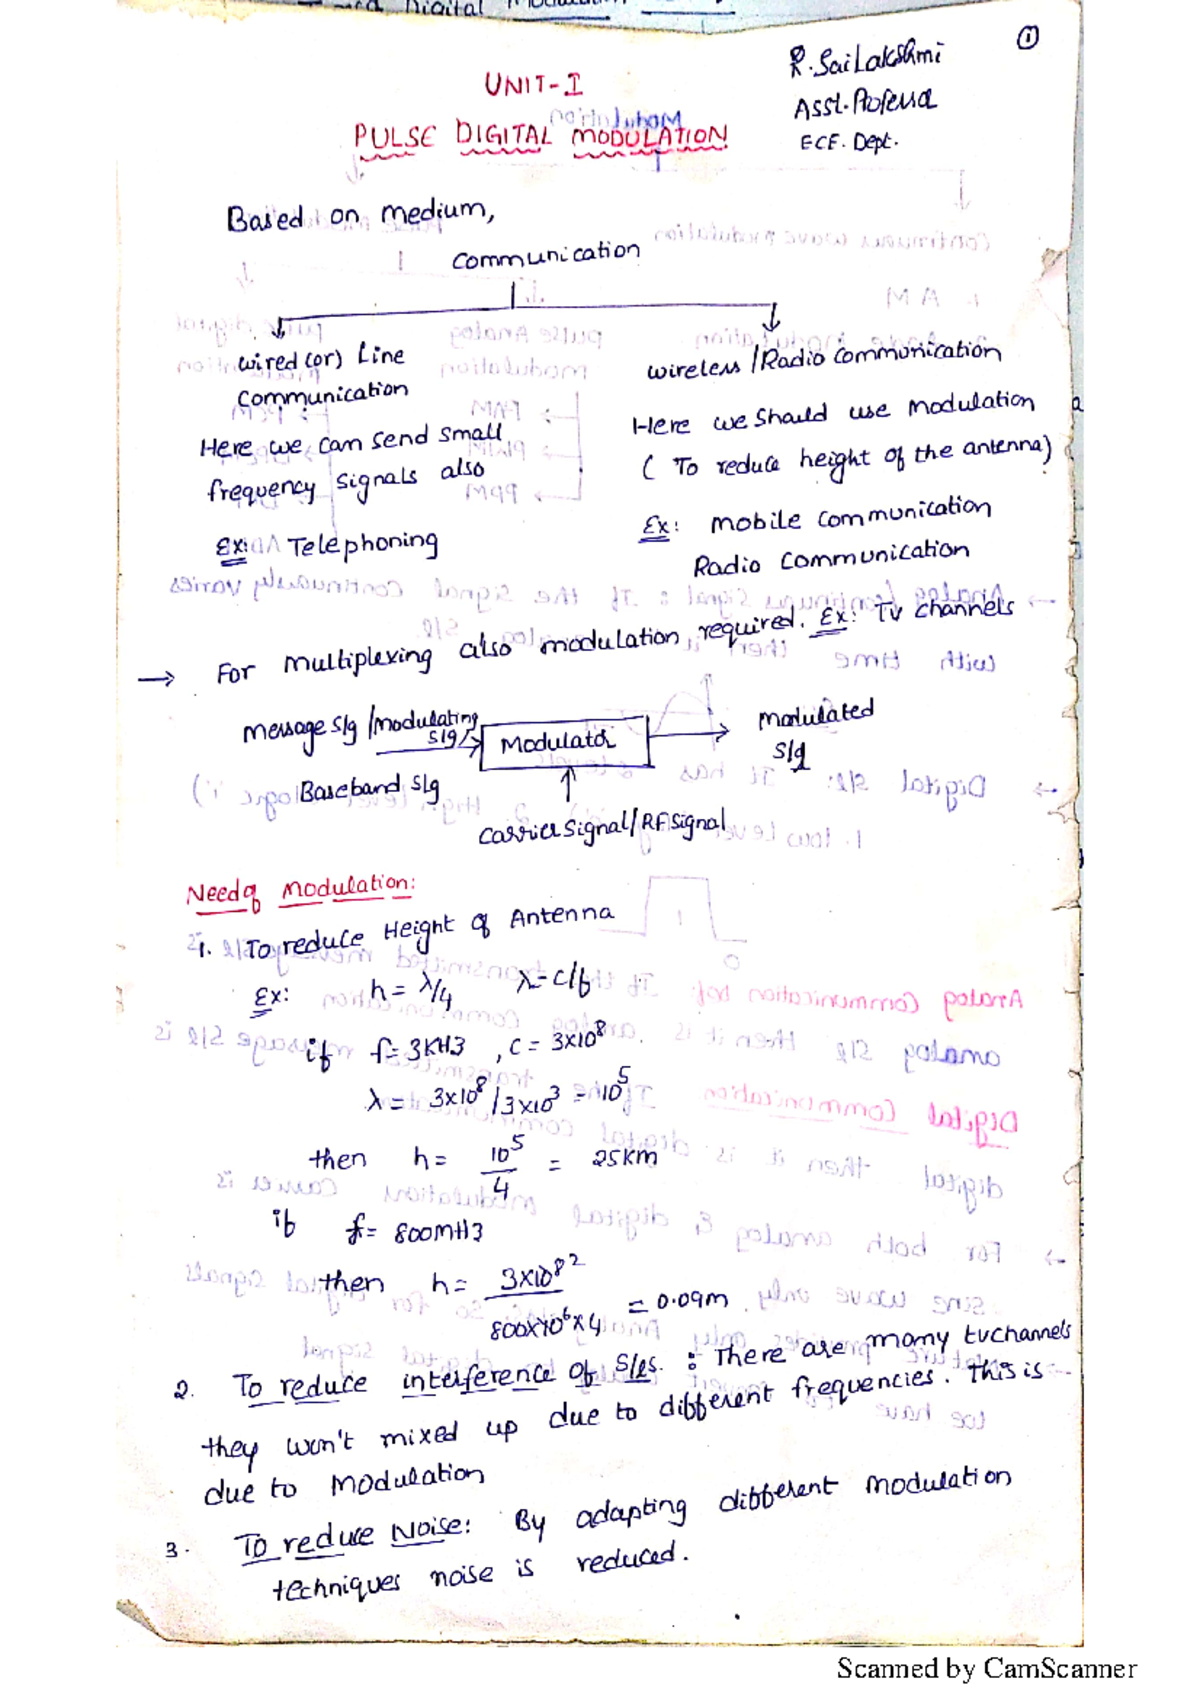 Digital
①
R. SaiLakshmi
Asst. Professor
ECE. Dept.
UNIT-I
PULSE DIGITAL MODULATION
Based on medium,
Communication
wired (or) Line
Communication
Here we can send small
frequency signals also
Ex: Telephoning
wireless / Radio communication
Here we should use modulation
( To reduce height of the antenna)
Ex: mobile communication
Radio communication
→ For multiplexing also modulation required. Ex: TV channels
message Slg / modulating
Slg
Modulator
modulated
Slg
Baseband Slg
carrier signal / RF signal
Need of modulation:
1. To reduce Height of Antenna
Ex: h = λ/4 λ = c/f
if f = 3KHz , c = 3x10⁸
λ = 3x10⁸ / 3x10³ = 10⁵
then h = 10⁵/4 = 25km
if f = 800MHz
then h = 3x10⁸ ² / 800x10⁶x4 = 0.09m
2. To reduce interference of Sles. : There are many tvchannels
they won't mixed up due to different frequencies. This is
due to modulation
3. To reduce Noise: By adapting different modulation
techniques noise is reduced.
Scanned by CamScanner